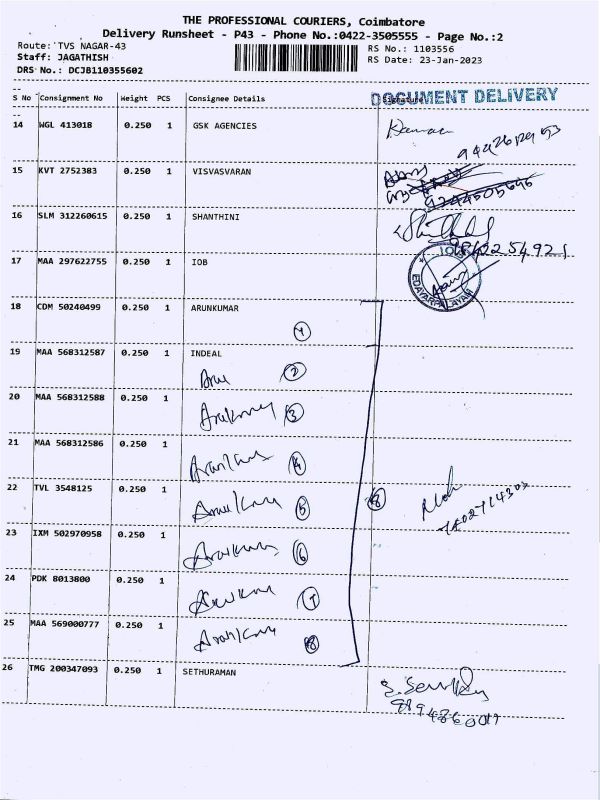 THE PROFESSIONAL COURIERS, Coimbatore
Delivery Runsheet - P43 - Phone No.:0422-3505555 - Page No.:2
Route: TVS NAGAR-43 RS No.: 1103556
Staff: JAGATHISH RS Date: 23-Jan-2023
DRS No.: DCJB110355602
S No Consignment No Weight PCS Consignee Details Signature
DOCUMENT DELIVERY
14 WGL 413018 0.250 1 GSK AGENCIES
15 KVT 2752383 0.250 1 VISVASVARAN
16 SLM 312260615 0.250 1 SHANTHINI
17 MAA 297622755 0.250 1 IOB
EDAYARPALAYAM
18 CDM 50240499 0.250 1 ARUNKUMAR
1
19 MAA 568312587 0.250 1 INDEAL
Aru 2
20 MAA 568312588 0.250 1
Arulkumar 3
21 MAA 568312586 0.250 1
4
22 TVL 3548125 0.250 1
5 8
23 IXM 502970958 0.250 1
6
24 PDK 8013800 0.250 1
7
25 MAA 569000777 0.250 1
8
26 TMG 200347093 0.250 1 SETHURAMAN